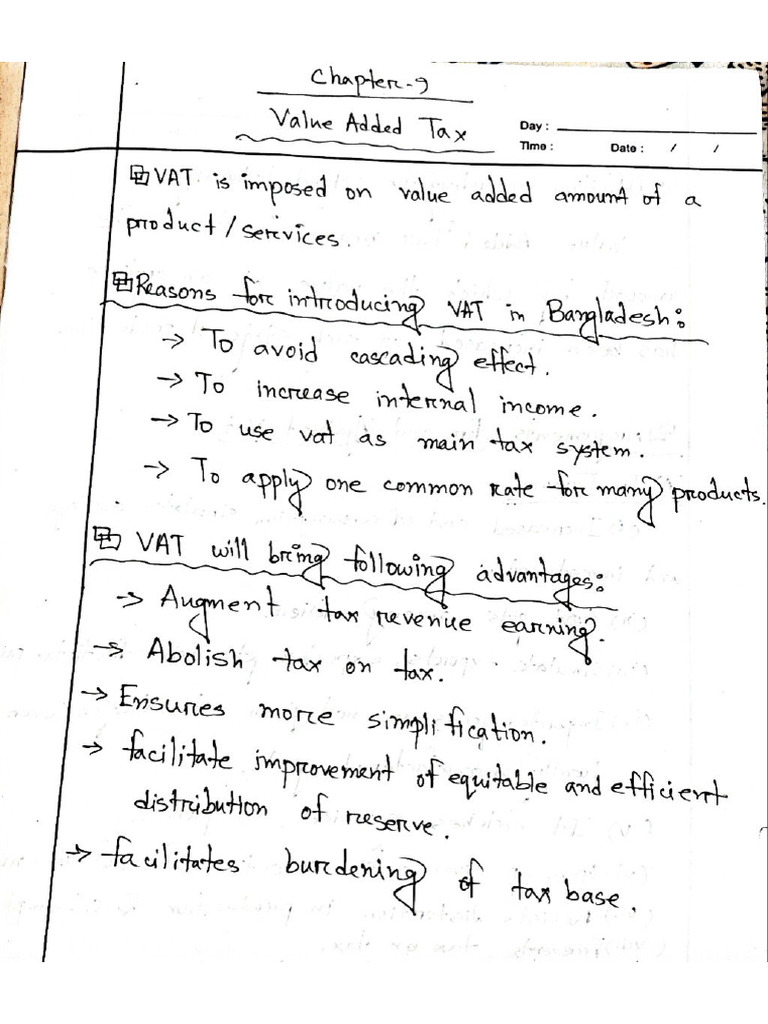 Chapter-9
Value Added Tax
Day :
Time :
Date : / /
VAT is imposed on value added amount of a
product/services.
Reasons for introducing VAT in Bangladesh:
→ To avoid cascading effect.
→ To increase internal income.
→ To use vat as main tax system.
→ To apply one common rate for many products.
VAT will bring following advantages:
→ Augment tax revenue earning.
→ Abolish tax on tax.
→ Ensures more simplification.
→ facilitate improvement of equitable and efficient
distribution of reserve.
→ facilitates burdening of tax base.